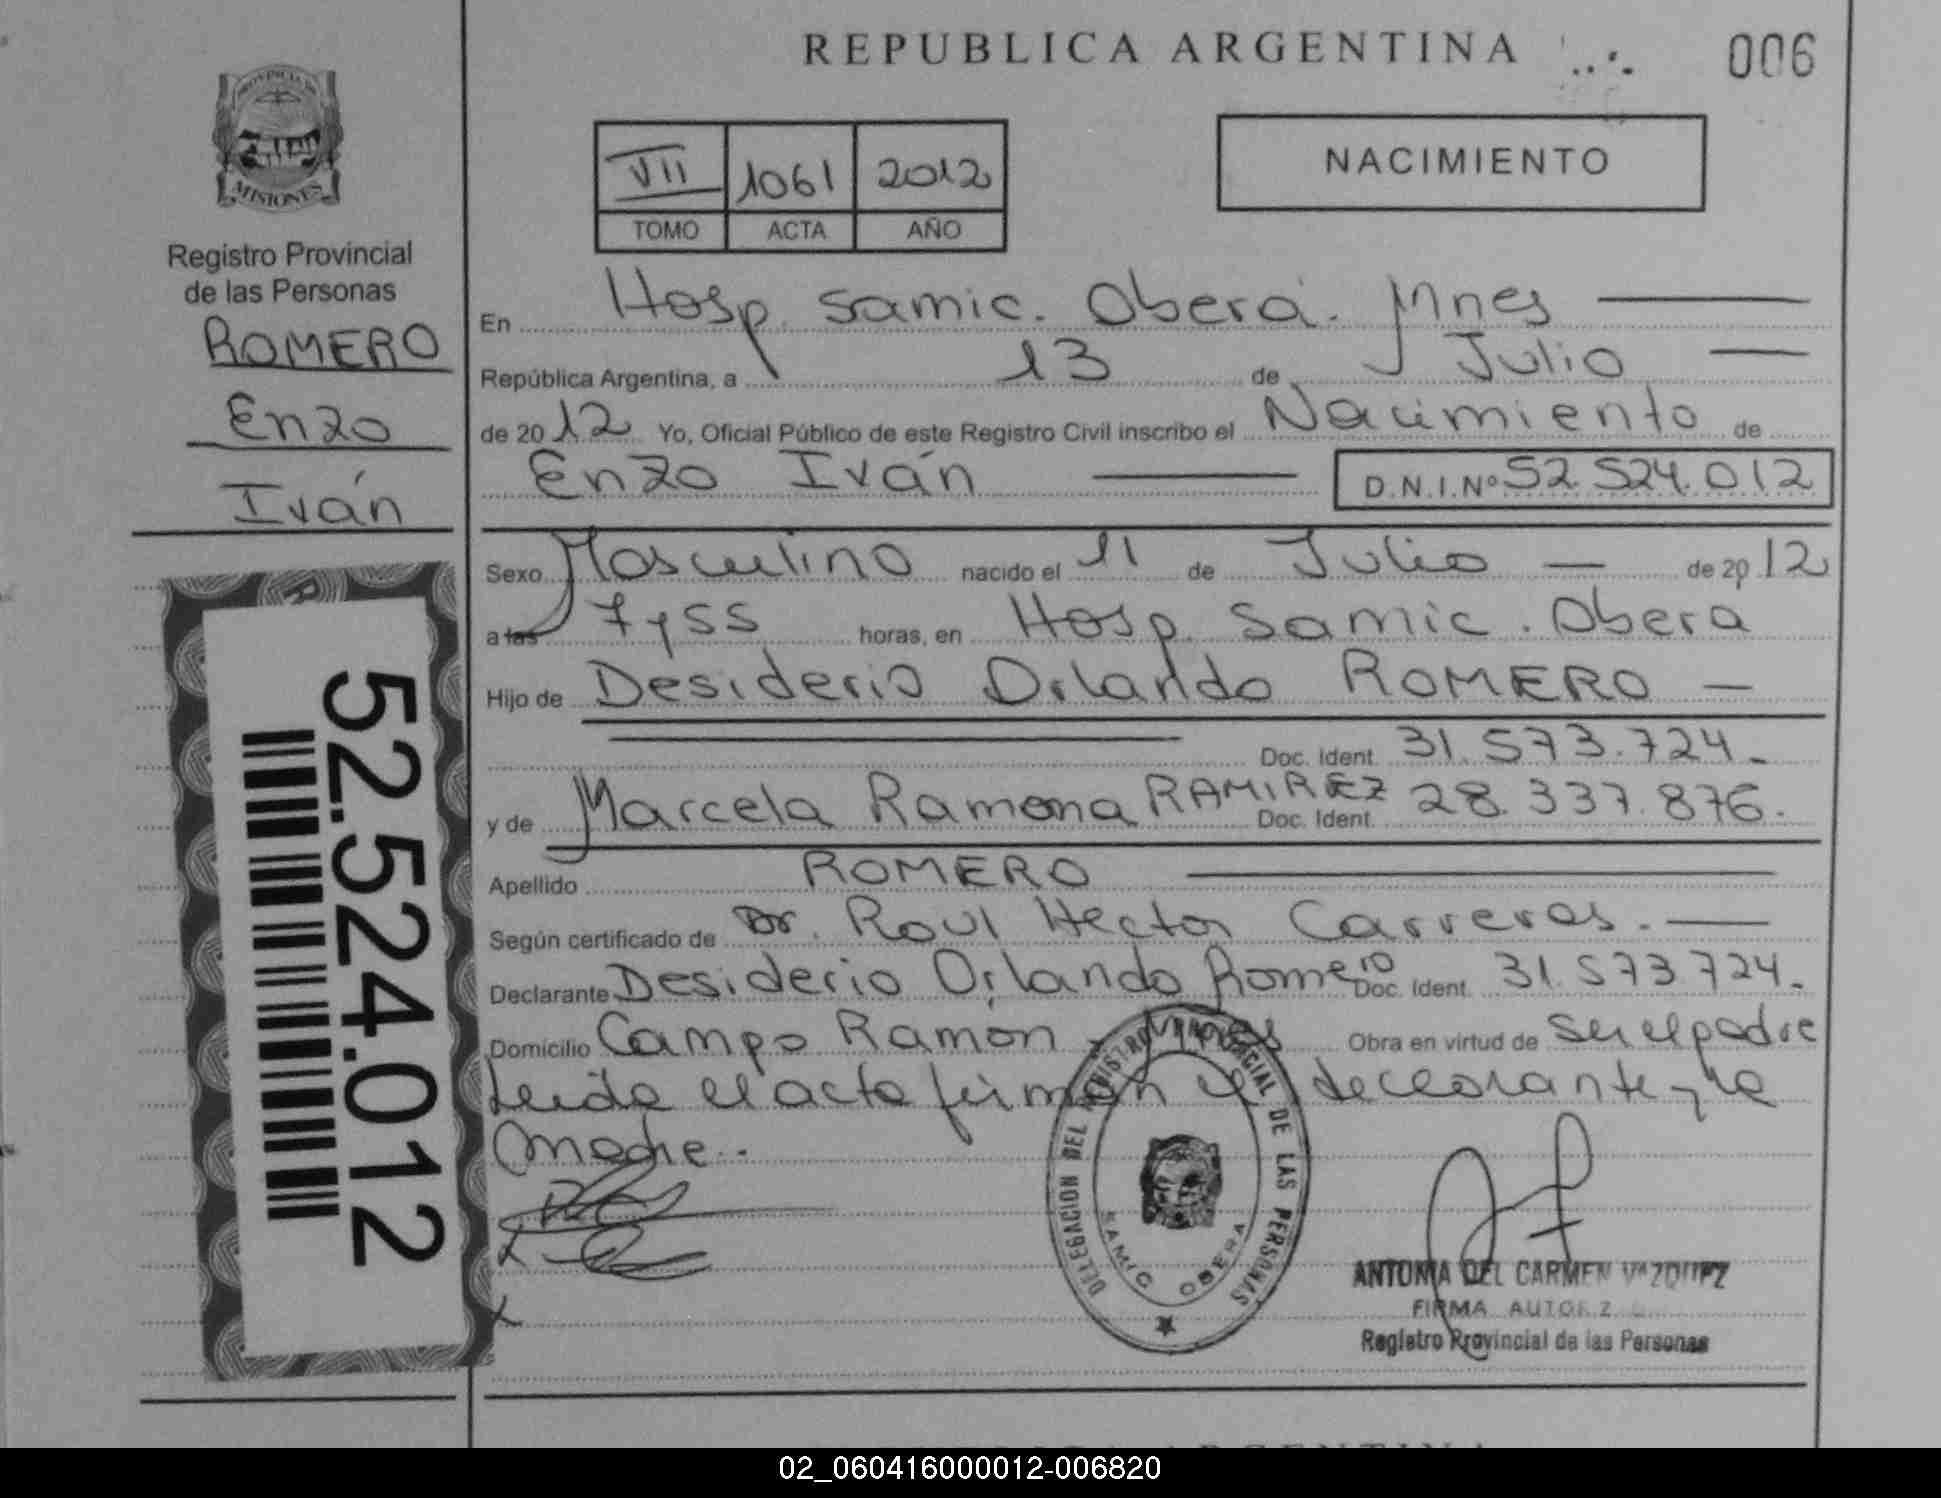 REPUBLICA ARGENTINA
006
PROVINCIA DE
MISIONES
Registro Provincial
de las Personas
ROMERO
Enzo
Iván
52.524.012
VII 1061 2012
TOMO ACTA AÑO
NACIMIENTO
En Hosp. Samic. Oberá. Mnes
República Argentina, a 13 de Julio
de 2012 Yo, Oficial Público de este Registro Civil inscribo el Nacimiento de
Enzo Iván D.N.I.Nº 52.524.012
Sexo Masculino nacido el 11 de Julio de 2012
a las 7 y 55 horas, en Hosp. Samic. Obera
Hijo de Desiderio Orlando ROMERO
Doc. Ident. 31.573.724.
y de Marcela Ramona RAMIREZ Doc. Ident. 28.337.876.
Apellido ROMERO
Según certificado de Dr. Raul Hector Carreras.
Declarante Desiderio Orlando Romero Doc. Ident. 31.573.724.
Domicilio Campo Ramón Mnes Obra en virtud de ser el padre
Leida el acta firman el declarante y la
madre.
DELEGACION DEL REGISTRO PROVINCIAL DE LAS PERSONAS
SAMIC OBERA
ANTONIA DEL CARMEN VAZQUEZ
FIRMA AUTORIZ
Registro Provincial de las Personas
02_060416000012-006820